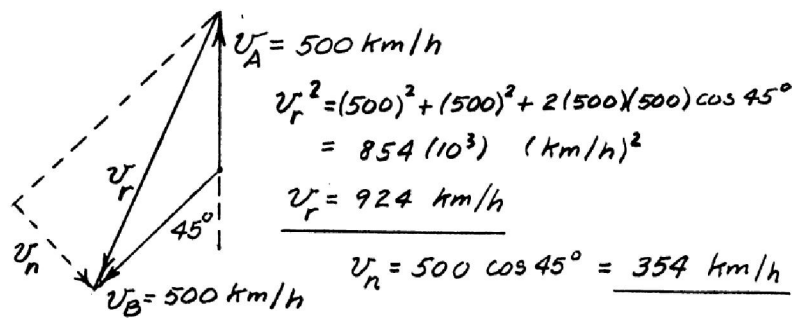 v_A = 500 km/h
v_r² = (500)² + (500)² + 2(500)(500) cos 45°
= 854 (10³) (km/h)²
v_r
v_r = 924 km/h
45°
v_n
v_n = 500 cos 45° = 354 km/h
v_B = 500 km/h